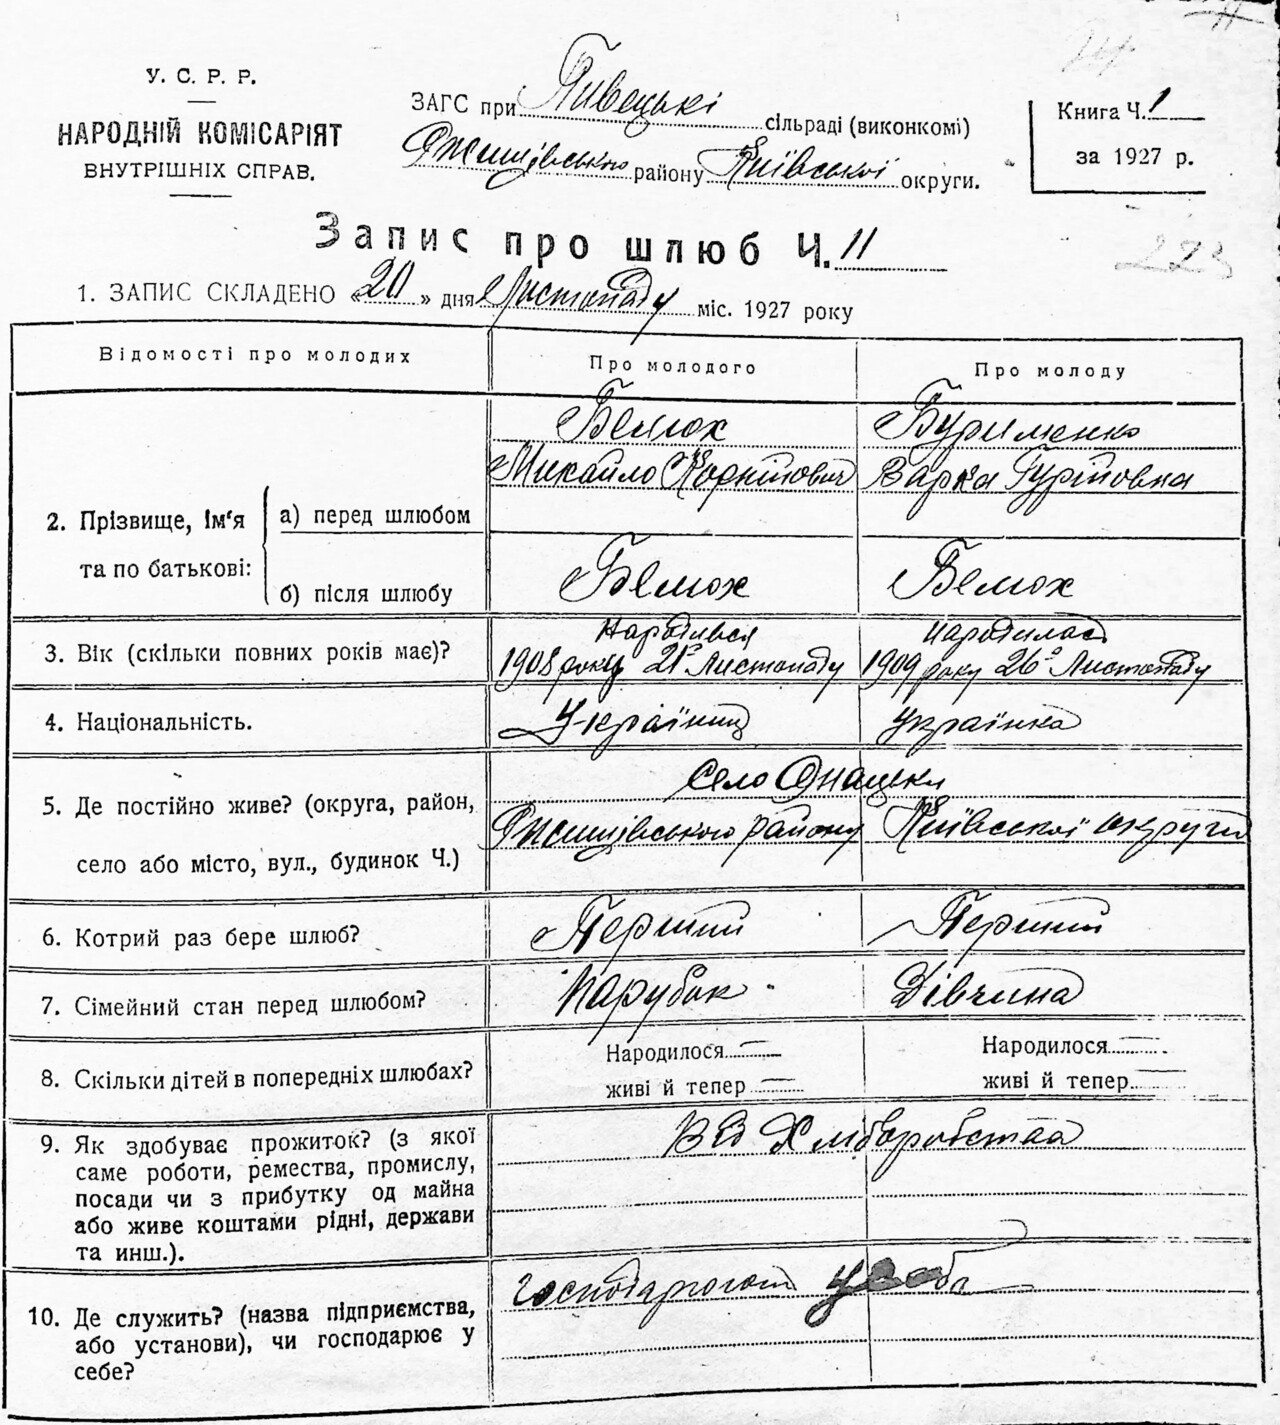 У. С. Р. Р.
НАРОДНІЙ КОМІСАРІЯТ
ВНУТРІШНІХ СПРАВ.
ЗАГС при Пивецькі сільраді (виконкомі)
Ржищівського району Київської округи.
Книга Ч. 1
за 1927 р.
223
Запис про шлюб Ч. 11
1. ЗАПИС СКЛАДЕНО «20» дня Листопаду міс. 1927 року
Відомості про молодих
Про молодого
Про молоду
2. Прізвище, ім'я та по батькові:
а) перед шлюбом
Бемох
Михайло Корнійович
Бурименко
Варка Гурійовна
б) після шлюбу
Бемох
Бемох
3. Вік (скільки повних років має)?
Народився
1908 року 21го Листопаду
Народилась
1909 року 26го Листопаду
4. Національність.
Українец
Українка
5. Де постійно живе? (округа, район,
село або місто, вул., будинок Ч.)
Село Онацьки
Ржищівського району Київської округи
6. Котрий раз бере шлюб?
Перший
Перший
7. Сімейний стан перед шлюбом?
Парубок
Дівчина
8. Скільки дітей в попередніх шлюбах?
Народилося —
живі й тепер —
Народилося —
живі й тепер
9. Як здобуває прожиток? (з якої
саме роботи, ремества, промислу,
посади чи з прибутку од майна
або живе коштами рідні, держави
та инш.).
Від Хліборобства
10. Де служить? (назва підприємства,
або установи), чи господарює у
себе?
господарюют у себе